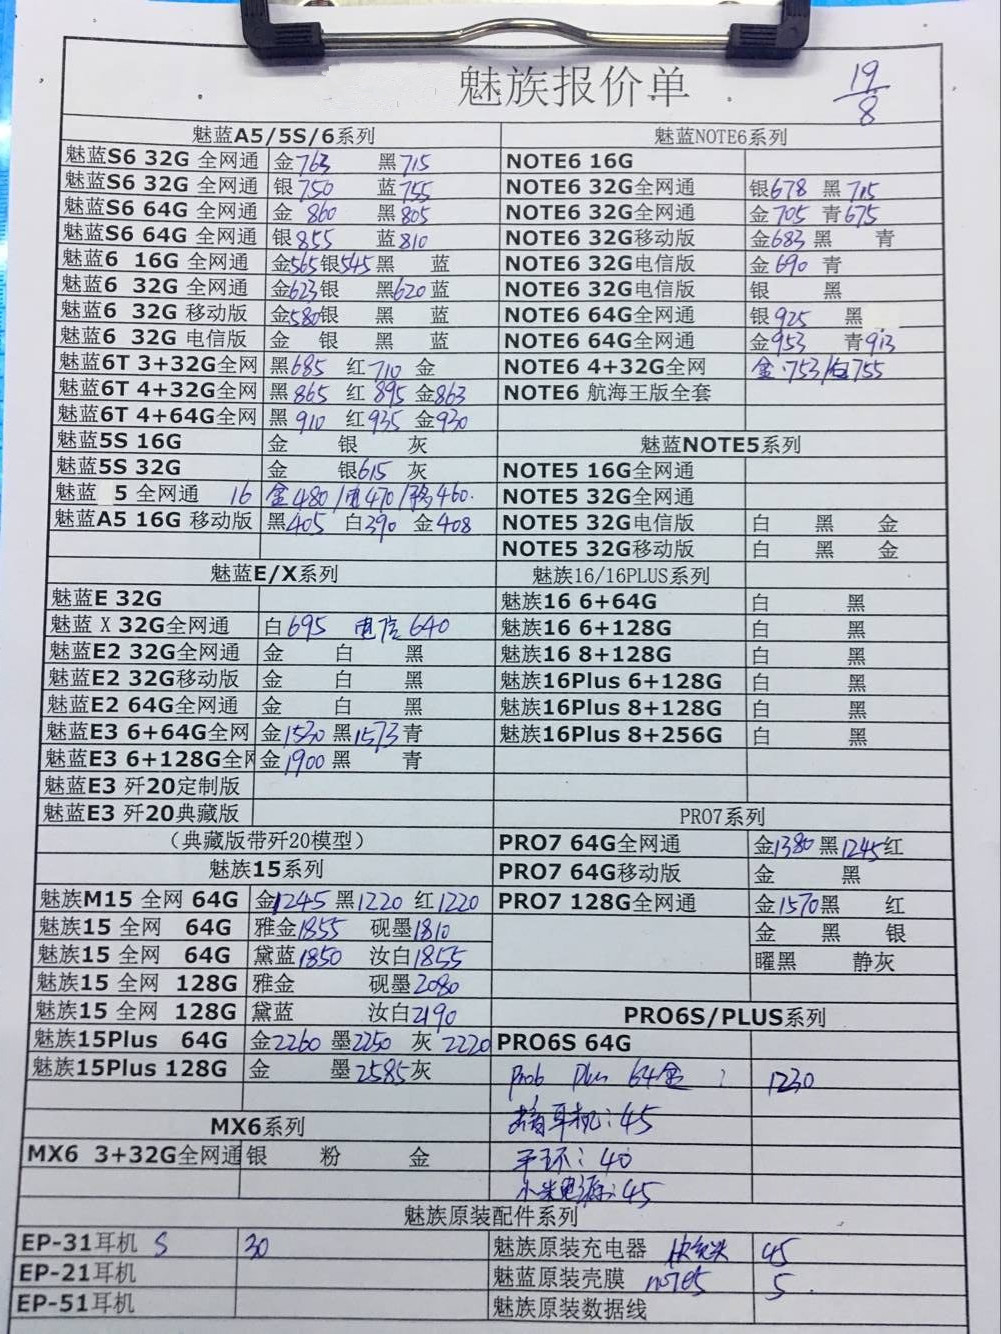 魅族报价单
19/8
魅蓝A5/5S/6系列
魅蓝S6 32G 全网通 金763 黑715
魅蓝S6 32G 全网通 银750 蓝755
魅蓝S6 64G 全网通 金 860 黑805
魅蓝S6 64G 全网通 银855 蓝810
魅蓝6 16G 全网通 金565 银545 黑 蓝
魅蓝6 32G 全网通 金623 银 黑620 蓝
魅蓝6 32G 移动版 金580 银 黑 蓝
魅蓝6 32G 电信版 金 银 黑 蓝
魅蓝6T 3+32G全网 黑685 红710 金
魅蓝6T 4+32G全网 黑865 红895 金863
魅蓝6T 4+64G全网 黑910 红935 金930
魅蓝5S 16G 金 银 灰
魅蓝5S 32G 金 银615 灰
魅蓝 5 全网通 16 金480/电470/移460.
魅蓝A5 16G 移动版 黑405 白390 金408
魅蓝E/X系列
魅蓝E 32G
魅蓝X 32G全网通 白695 电信640
魅蓝E2 32G全网通 金 白 黑
魅蓝E2 32G移动版 金 白 黑
魅蓝E2 64G全网通 金 白 黑
魅蓝E3 6+64G全网 金1530 黑1573 青
魅蓝E3 6+128G全网 金1900 黑 青
魅蓝E3 歼20定制版
魅蓝E3 歼20典藏版
（典藏版带歼20模型）
魅族15系列
魅族M15 全网 64G 金1245 黑1220 红1220
魅族15 全网 64G 雅金1855 砚墨1810
魅族15 全网 64G 黛蓝1850 汝白1855
魅族15 全网 128G 雅金 砚墨2080
魅族15 全网 128G 黛蓝 汝白2190
魅族15Plus 64G 金2260 墨2250 灰 2220
魅族15Plus 128G 金 墨2585 灰
MX6系列
MX6 3+32G全网通 银 粉 金
魅蓝NOTE6系列
NOTE6 16G
NOTE6 32G全网通 银678 黑715
NOTE6 32G全网通 金705 青675
NOTE6 32G移动版 金683 黑 青
NOTE6 32G电信版 金690 青
NOTE6 32G电信版 银 黑
NOTE6 64G全网通 银925 黑
NOTE6 64G全网通 金953 青913
NOTE6 4+32G全网 金.753/ 755
NOTE6 航海王版全套
魅蓝NOTE5系列
NOTE5 16G全网通
NOTE5 32G全网通
NOTE5 32G电信版 白 黑 金
NOTE5 32G移动版 白 黑 金
魅族16/16PLUS系列
魅族16 6+64G 白 黑
魅族16 6+128G 白 黑
魅族16 8+128G 白 黑
魅族16Plus 6+128G 白 黑
魅族16Plus 8+128G 白 黑
魅族16Plus 8+256G 白 黑
PRO7系列
PRO7 64G全网通 金1380 黑1245 红
PRO7 64G移动版 金 黑
PRO7 128G全网通 金1570 黑 红
金 黑 银
曜黑 静灰
PRO6S/PLUS系列
PRO6S 64G
Pro6 Plus 64金: 1230
耳机:45
手环:40
小米电源:45
魅族原装配件系列
EP-31耳机 S 30
EP-21耳机
EP-51耳机
魅族原装充电器 快充头 45
魅蓝原装壳膜 note5 5
魅族原装数据线